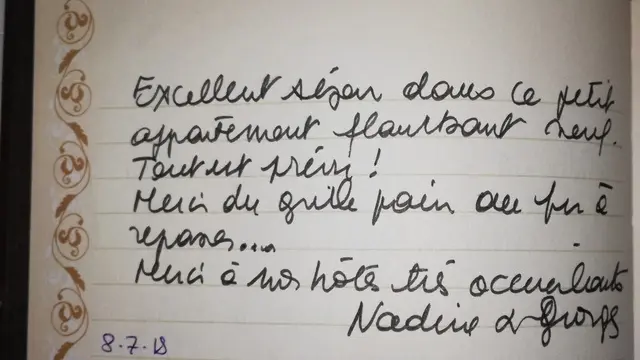 Excellent séjour dans ce petit
appartement flambant neuf.
Tout est prévu !
Merci du grille pain au fer à
repasser....
Merci à nos hôtes très accueillants
Nadine & Georges
8.7.18